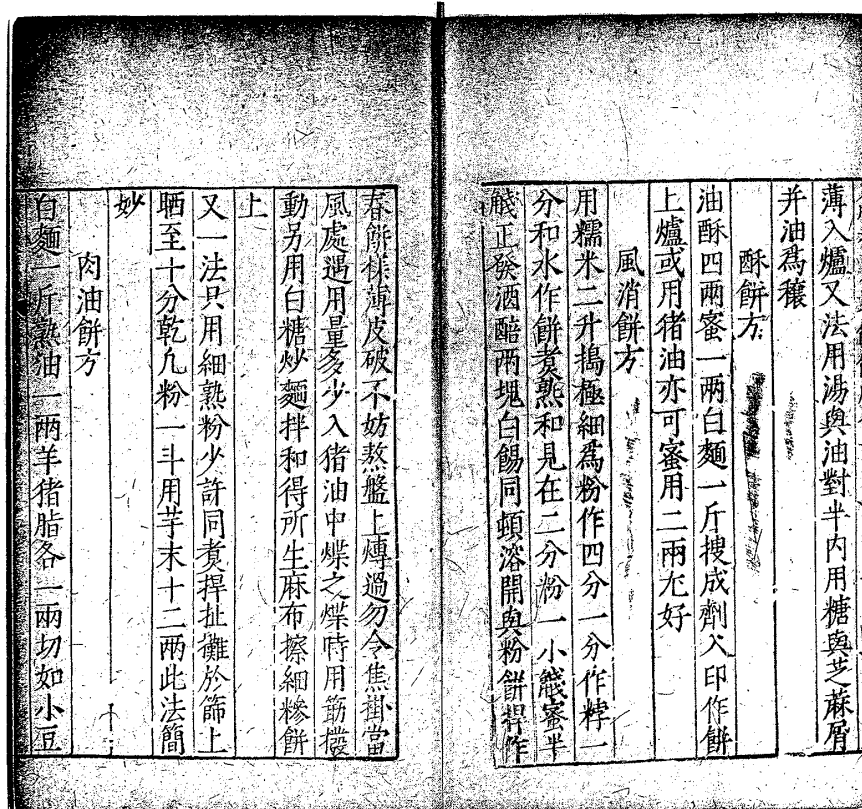 薄入爐又法用湯與油對半内用糖與芝蔴屑
并油爲穰
酥餅方
油酥四兩蜜一兩白麵一斤搜成劑入印作餅
上爐或用猪油亦可蜜用二兩尤好
風消餅方
用糯米二升搗極細爲粉作四分一分作𥹃一
分和水作餅煑熟和見在二分粉一小盞蜜半
盞正發酒醅兩塊白餳同頓溶開與粉餅捍作
春餅樣薄皮破不妨熬盤上煿過勿令焦掛當
風處遇用量多少入猪油中煠之煠時用筯撥
動另用白糖炒麵拌和得所生麻布擦細糝餅
上
又一法只用細熟粉少許同煑捍扯攤於篩上
晒至十分乾凢粉一斗用芋末十二兩此法簡
妙
肉油餅方
白麵一斤熟油一兩羊猪脂各一兩切如小豆